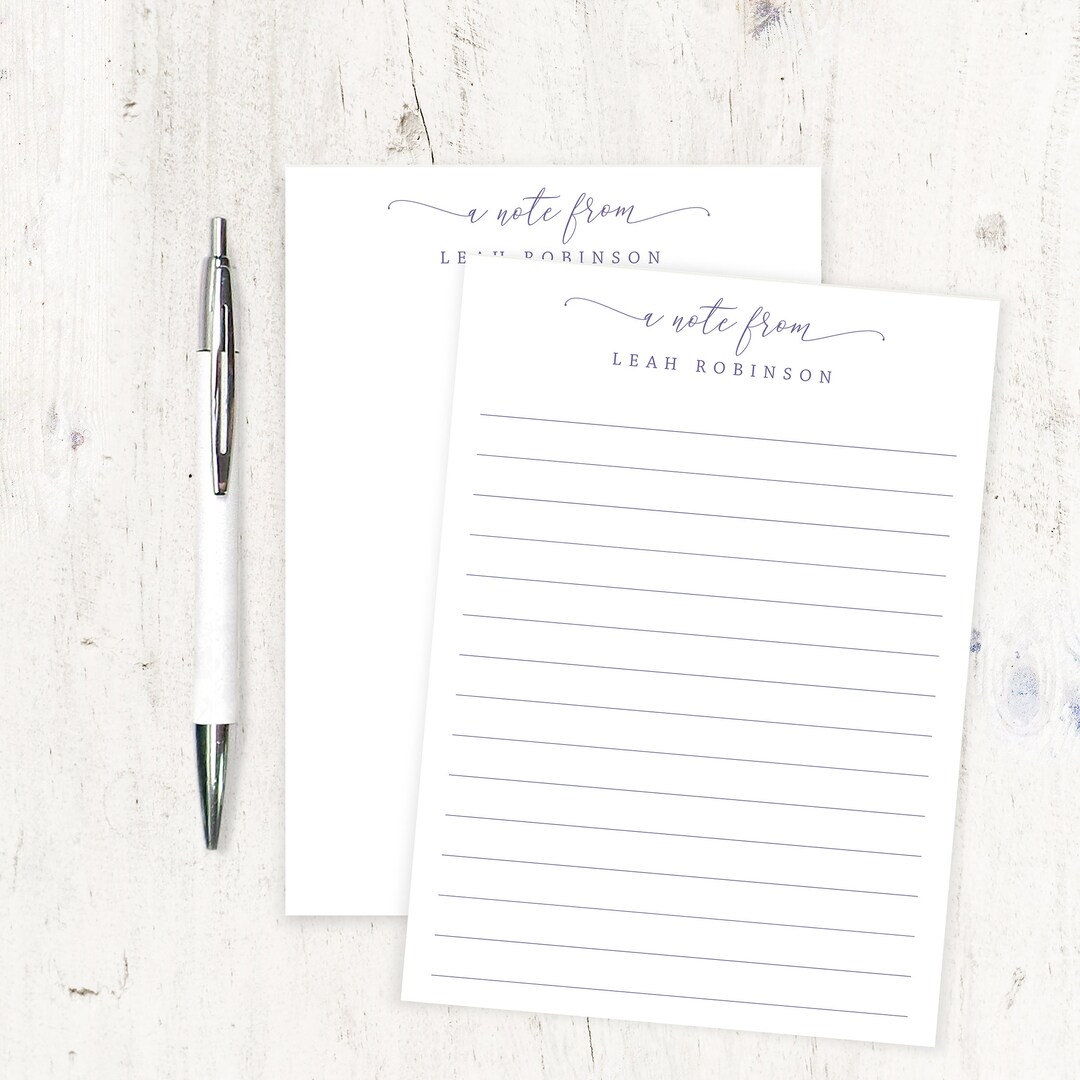 a note from
LEAH ROBINSON
a note from
LEAH ROBINSON